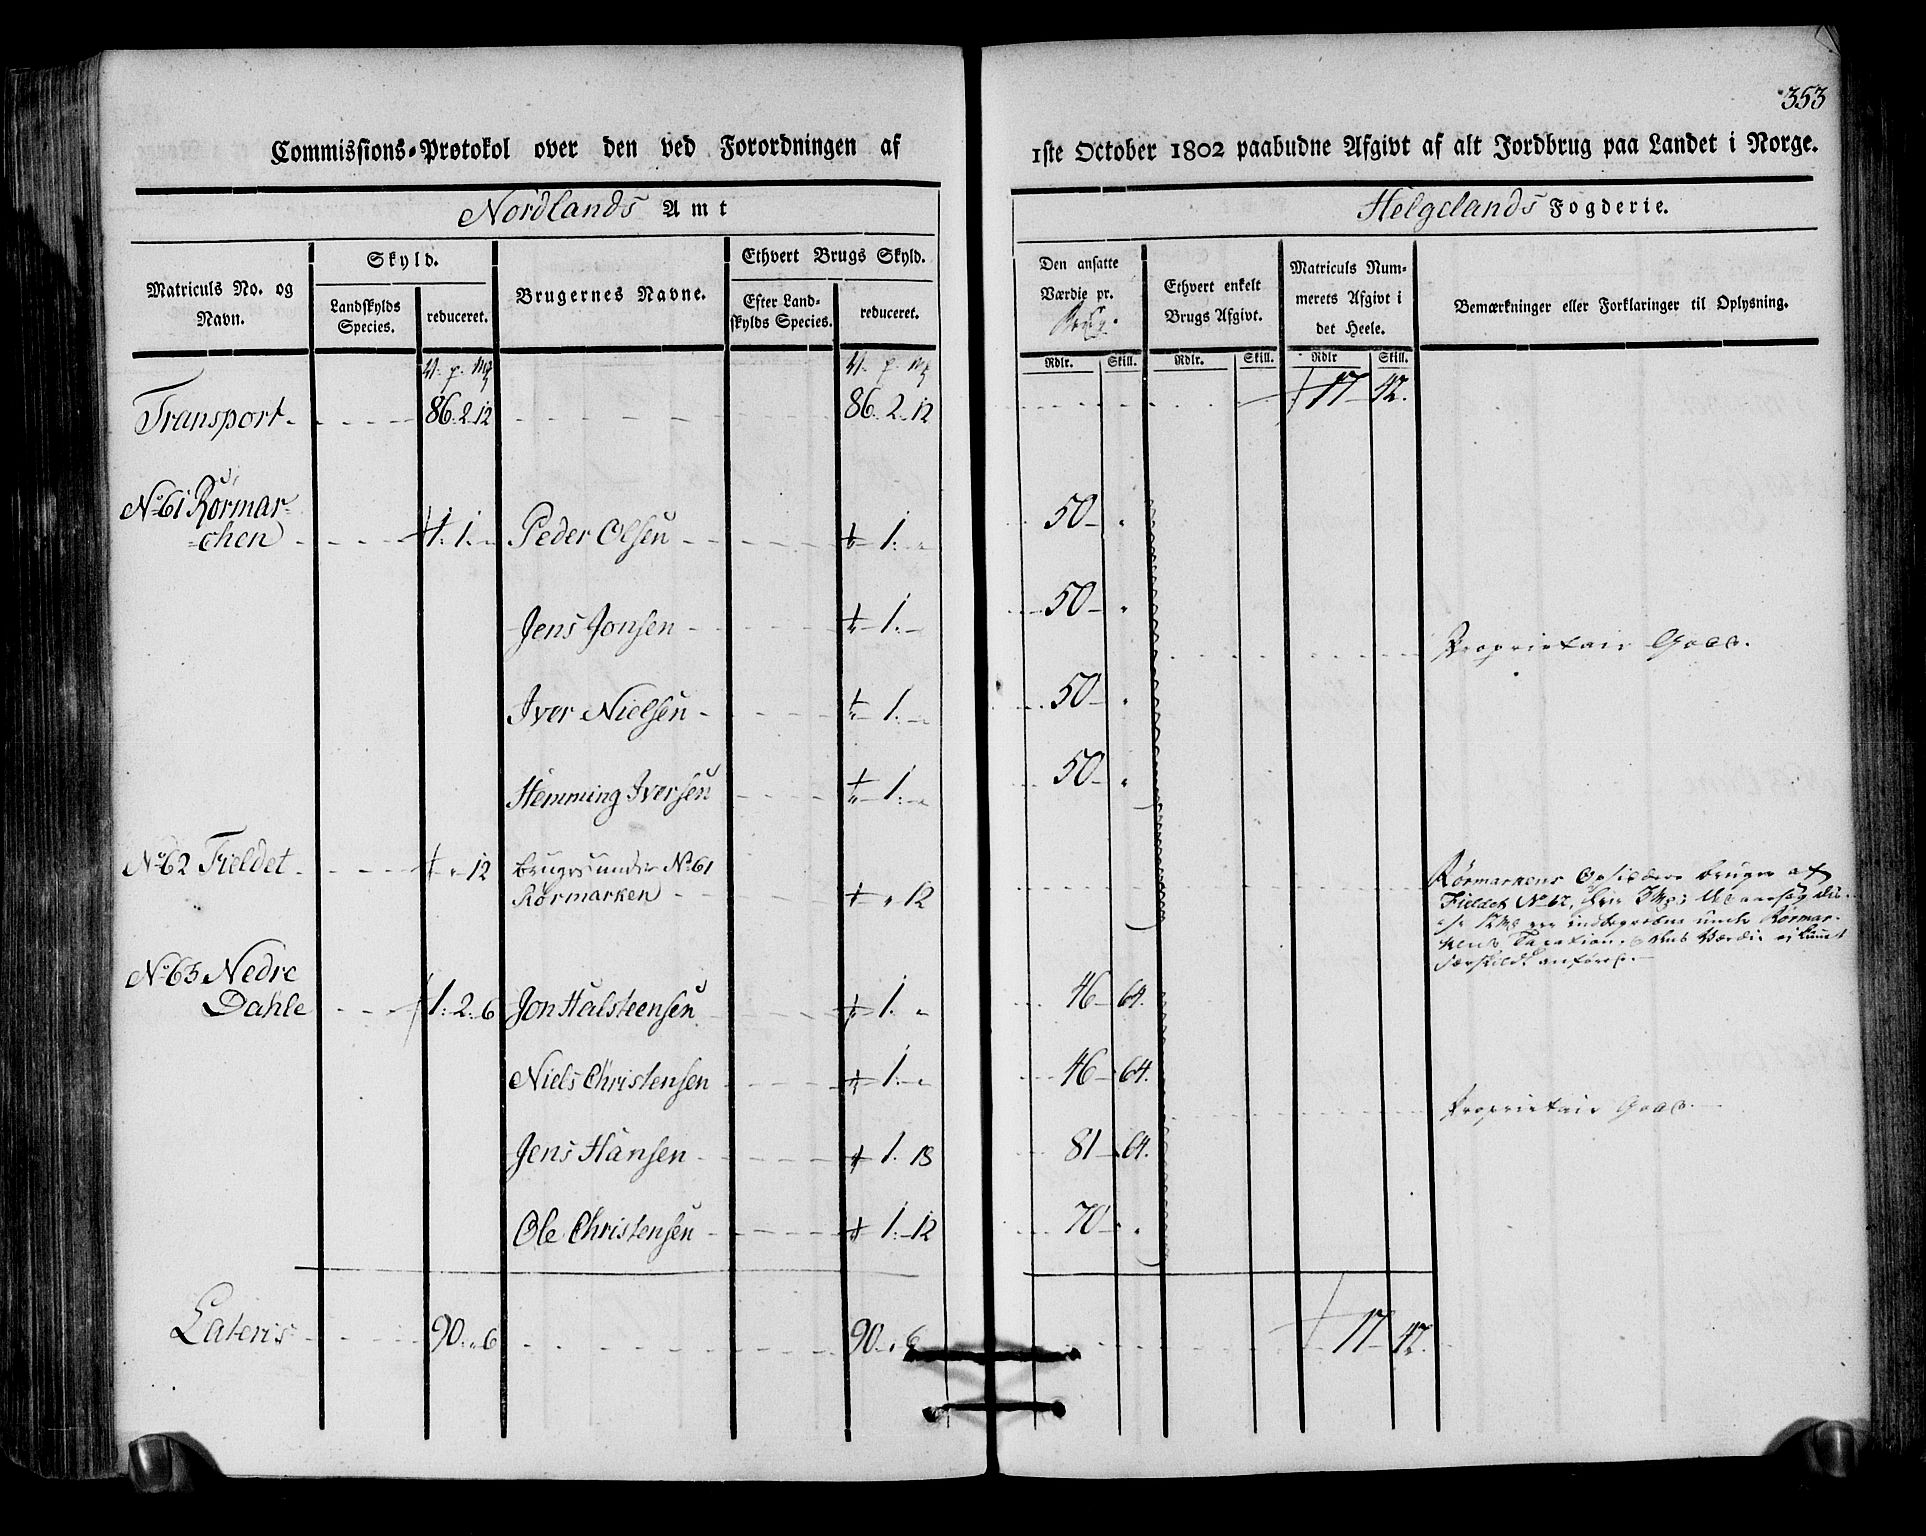 353
Commissions-Protokol over den ved Forordningen af
1ste October 1802 paabudne Afgivt af alt Jordbrug paa Landet i Norge.
Nordlands Amt
Helgelands Fogderie.
Matriculs No. og Navn.
Skyld.
Landskylds Species.
reduceret.
Brugernes Navne.
Ethvert Brugs Skyld.
Efter Landskylds Species.
reduceret.
Den ansatte Værdie pr.
Ethvert enkelt Brugs Afgivt.
Matriculs Nummerets Afgivt i det Heele.
Bemærkninger eller Forklaringer til Oplysning.
Rdlr. Skill. Rdlr. Skill. Rdlr Skill.
Transport 86. 2. 12 86. 2. 12 17 42.
No 61 Rørmar-
chen 1. 1. Peder Olsen 1. 50
Jens Jonsen 1. 50 Proprietair Gods.
Iver Nielsen 1. 50
Hemming Iversen 1. 50
No 62 Fieldet 12 bruges under No 61
Rørmarken 12
Rørmarkens Opsiddere bruger af
Fieldet No 62,
indbegrebne under Rørmar-
kens Taxation, Værdie ej
særskildt anføres.
No 63 Nedre
Dahle 1. 2. 6 Jon Halsteensen 1. 46 64.
Niels Christensen 1. 46 64.
Proprietair Gods.
Jens Hansen 1. 18 81 64.
Ole Christensen 1. 12 70
Lateris 90. 6 90. 6 17 42.